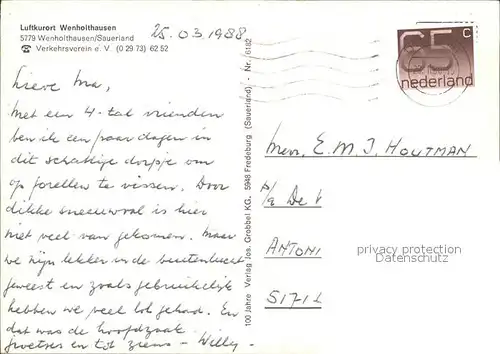 Luftkurort Wenholthausen
5779 Wenholthausen/Sauerland
☎ Verkehrsverein e. V. (0 29 73) 62 52
25.03.1988
Lieve Ma,
Met een 4-tal vrienden
ben ik een paar dagen in
dit schattige dorpje om
op forellen te vissen. Door
dikke sneeuwval is hier
niet veel van gekomen. Maar
we zijn lekker in de buitenlucht
geweest en zoals gebruikelijk
hebben we veel lol gehad. En
dat was de hoofdzaak.
Groetjes en tot ziens - Willy -
100 Jahre Verlag Jos. Grobbel KG, 5948 Fredeburg (Sauerland) - Nr. 6182
65 c
nederland
Mevr. E. M. J. HOUTMAN
p/a De V
ANTONI
privacy protection
Datenschutz